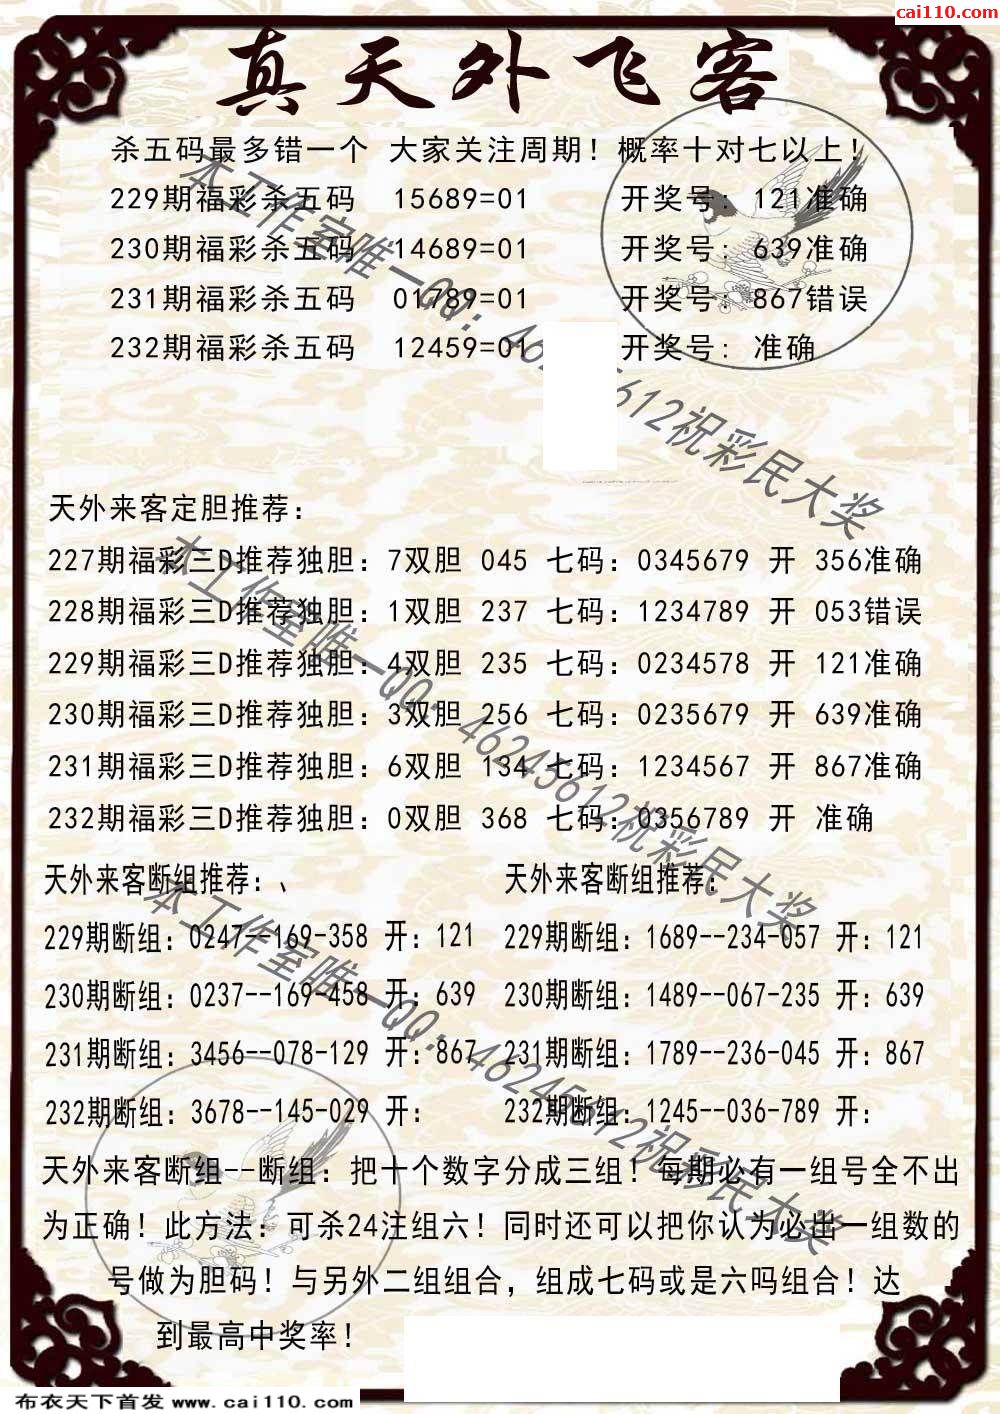 cai110.com
真天外飞客
杀五码最多错一个 大家关注周期！概率十对七以上！
229期福彩杀五码 15689=01 开奖号：121准确
230期福彩杀五码 14689=01 开奖号：639准确
231期福彩杀五码 01789=01 开奖号：867错误
232期福彩杀五码 12459=01 开奖号：准确
本工作室唯一QQ：46245612祝彩民大奖
天外来客定胆推荐：
227期福彩三D推荐独胆：7双胆 045 七码：0345679 开 356准确
228期福彩三D推荐独胆：1双胆 237 七码：1234789 开 053错误
229期福彩三D推荐独胆：4双胆 235 七码：0234578 开 121准确
230期福彩三D推荐独胆：3双胆 256 七码：0235679 开 639准确
231期福彩三D推荐独胆：6双胆 134 七码：1234567 开 867准确
232期福彩三D推荐独胆：0双胆 368 七码：0356789 开 准确
本工作室唯一QQ：46245612祝彩民大奖
天外来客断组推荐：、 天外来客断组推荐：
229期断组：0247--169-358 开：121 229期断组：1689--234-057 开：121
230期断组：0237--169-458 开：639 230期断组：1489--067-235 开：639
231期断组：3456--078-129 开：867 231期断组：1789--236-045 开：867
232期断组：3678--145-029 开： 232期断组：1245--036-789 开：
本工作室唯一QQ：46245612祝彩民大奖
天外来客断组--断组：把十个数字分成三组！每期必有一组号全不出
为正确！此方法：可杀24注组六！同时还可以把你认为必出一组数的
号做为胆码！与另外二组组合，组成七码或是六吗组合！达
到最高中奖率！
布衣天下首发 www.cai110.com